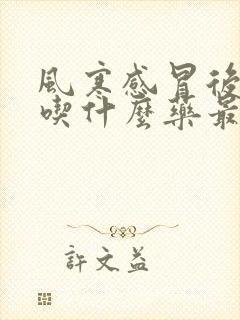 風寒感冒後
喫什麼藥最
許文益